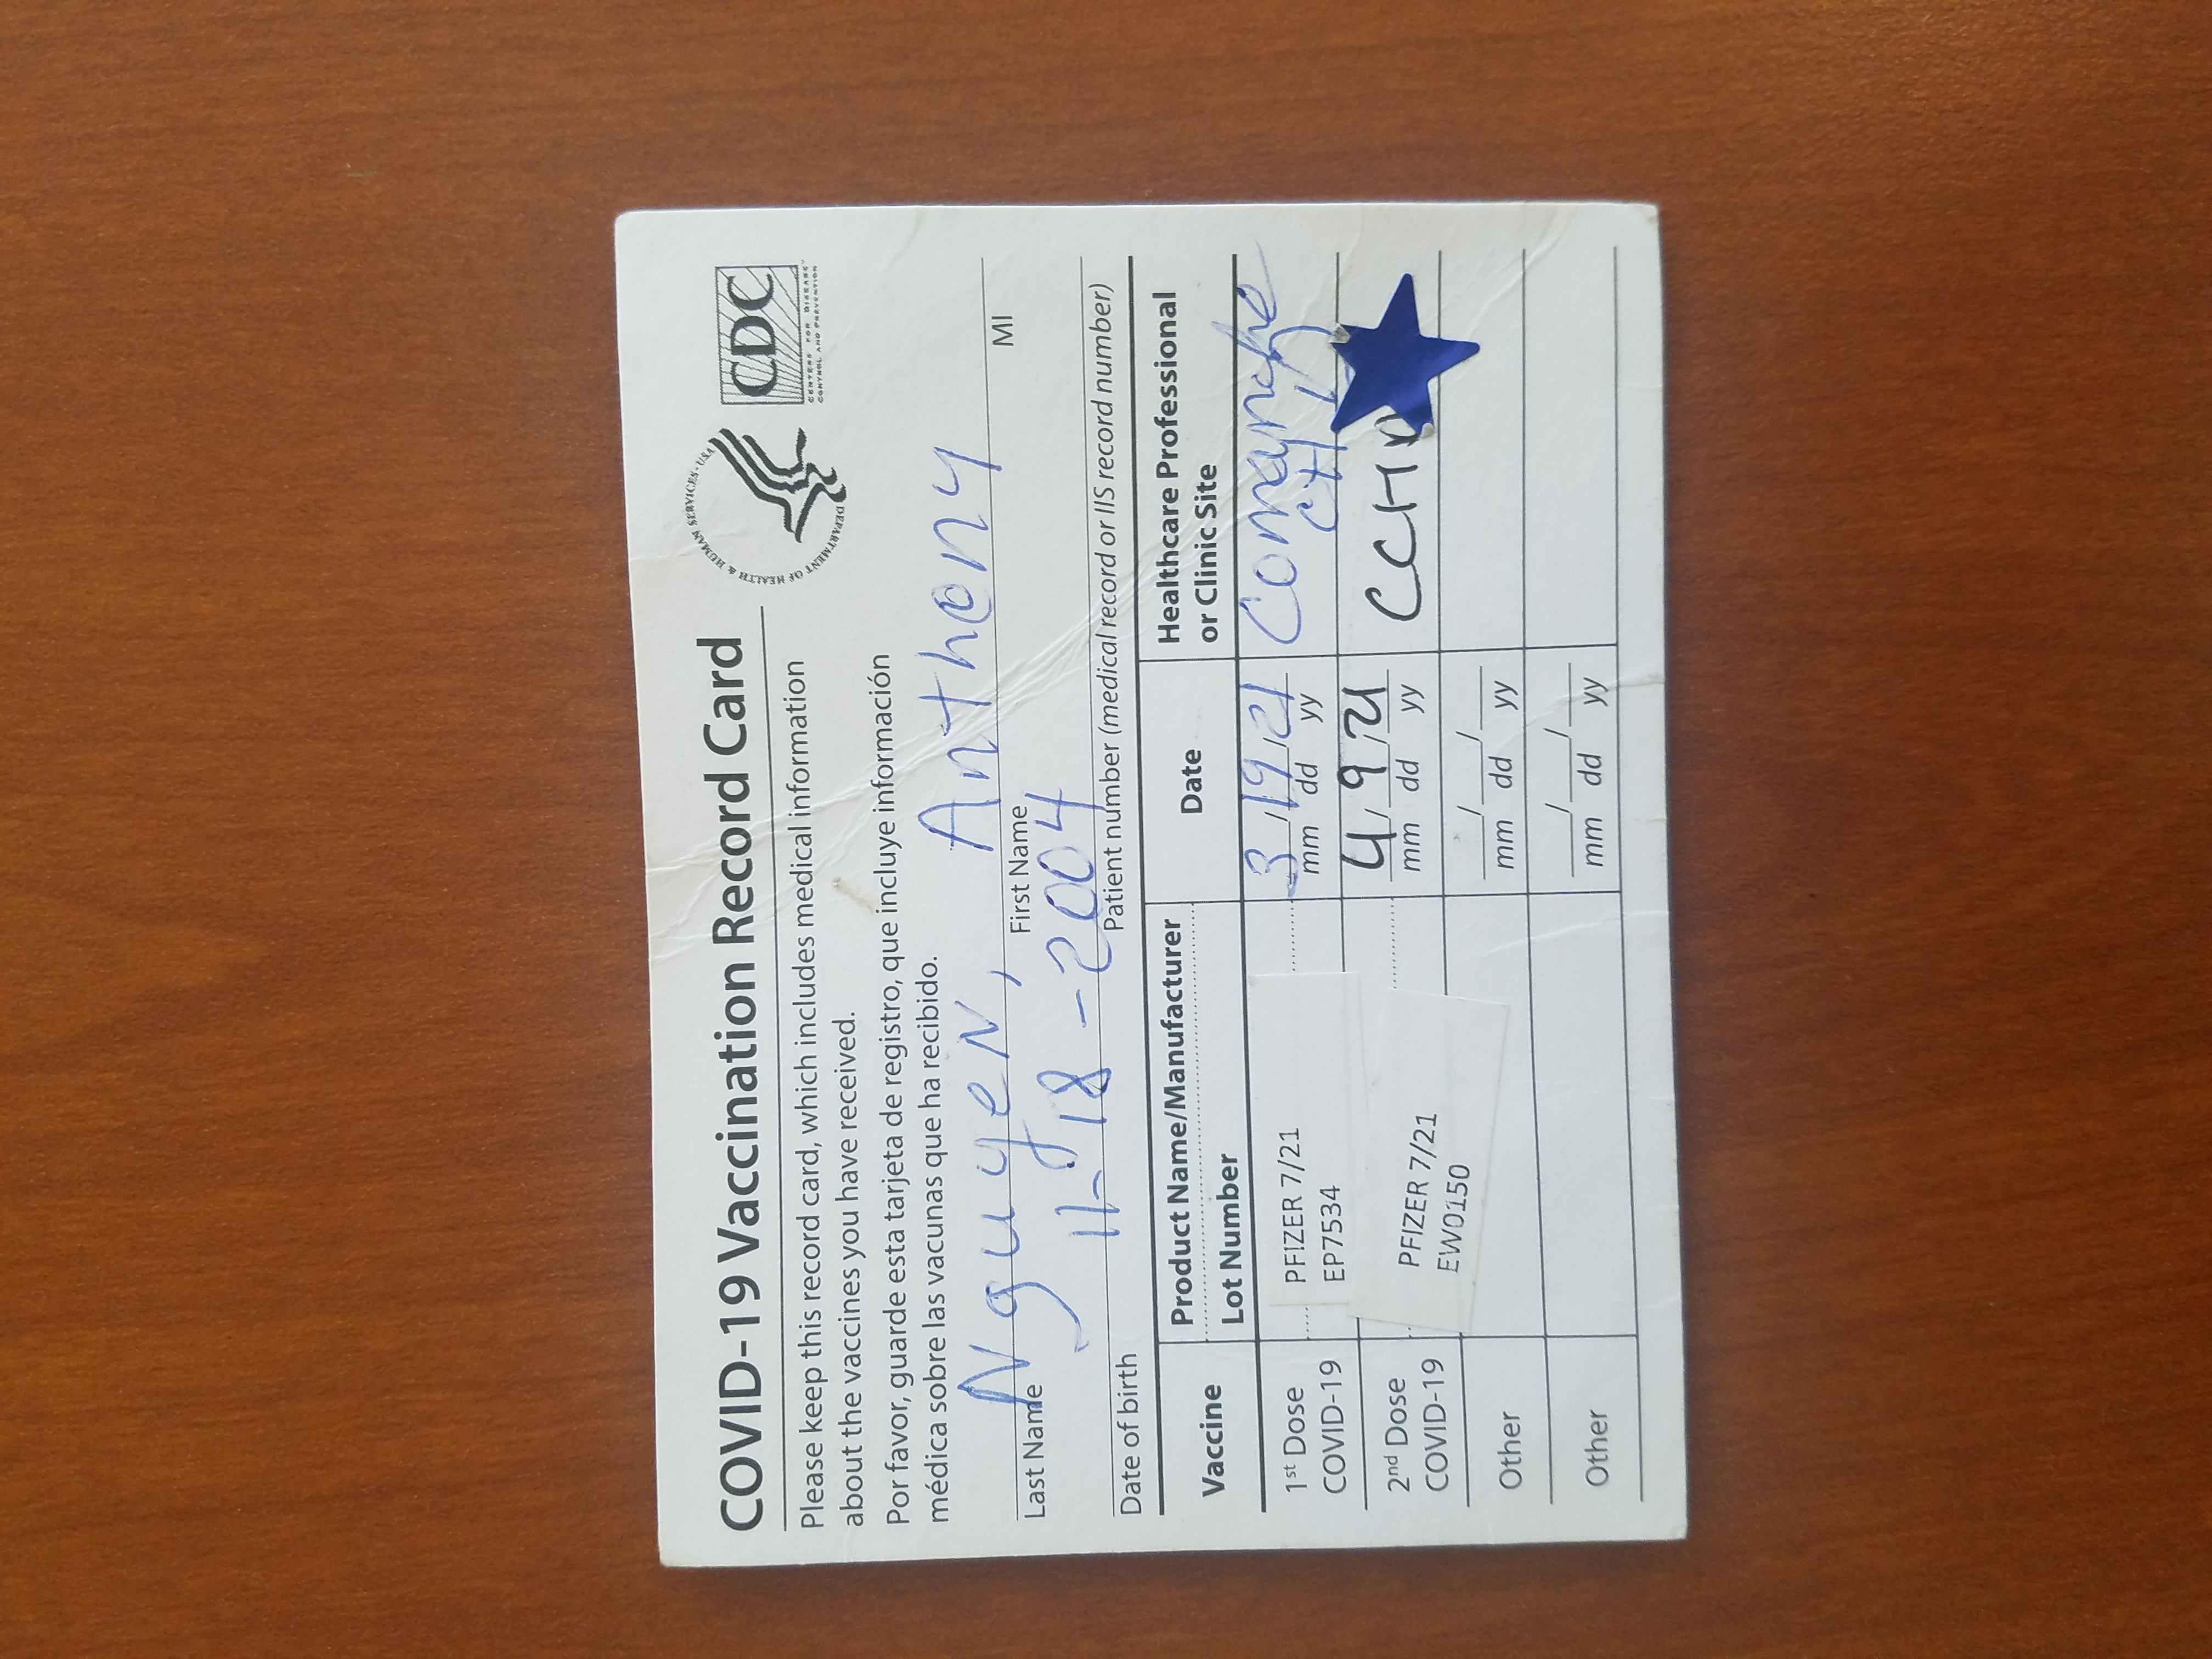 COVID-19 Vaccination Record Card
DEPARTMENT OF HEALTH & HUMAN SERVICES · USA
CDC
CENTERS FOR DISEASE™
CONTROL AND PREVENTION
Please keep this record card, which includes medical information
about the vaccines you have received.
Por favor, guarde esta tarjeta de registro, que incluye información
médica sobre las vacunas que ha recibido.
Nguyen, Anthony
Last Name First Name MI
11-18-2004
Date of birth Patient number (medical record or IIS record number)
Vaccine Product Name/Manufacturer Date Healthcare Professional
Lot Number or Clinic Site
1st Dose PFIZER 7/21 3/19/21 Comanche
COVID-19 EP7534 mm dd yy
2nd Dose PFIZER 7/21 4/9/21 CCHD
COVID-19 EW0150 mm dd yy
Other / /
mm dd yy
Other / /
mm dd yy